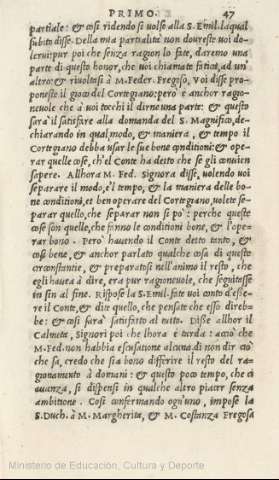 PRIMO. 47
partiale: & cosi ridendo si volse alla S. Emil. laqual
subito disse. Della mia partialità non dovreste voi do-
lerui pur poi che senza ragion lo fate, daremo una
parte di questo honor, che voi chiamate fatica, ad un'
altro: & rivoltasi à M. Feder. Fregoso, Voi disse pro-
poneste il gioco del Cortegiano: però è anchor ragio-
neuole che à voi tocchi il dirne una parte: & questo
sarà il satisfare alla domanda del S. Magnifico, de-
chiarando in qual modo, & maniera, & tempo il
Cortegiano debba usar le sue bone conditioni: & ope-
rar quelle cose, ch'el Conte ha detto che se gli conuien
sapere. Allhora M. Fed. Signora disse, volendo voi
separare il modo, e'l tempo, & la maniera delle bo-
ne conditioni, et ben operare del Cortegiano, volete se-
parar quello, che separar non si pò: perche queste
cose son quelle, che fanno le conditioni bone, & l'ope-
rar bono. Però havendo il Conte detto tanto, &
cosi bene, & anchor parlato qualche cosa di queste
circonstantie, & preparatosi nell'animo il resto, che
egli havea à dire, era pur ragioneuole, che seguitasse
in sin al fine. Rispose la S. Emil. fate voi conto d'esse-
re il Conte, & dite quello, che pensate che esso direb-
be: & cosi sarà satisfatto al tutto. Disse allhor il
Calmeta, Signori poi che l'hora è tarda: acciò che
M. Fed. non habbia escusatione alcuna di non dir ciò
che sa, credo che sia bono differire il resto del ra-
gionamento à domani: & questo poco tempo, che ci
auanza, si dispensi in qualche altro piacer senza
ambitione. Cosi confermando ogn'uno, impose la
S. Duch. à M. Margherita, & M. Costanza Fregosa
Ministerio de Educación, Cultura y Deporte